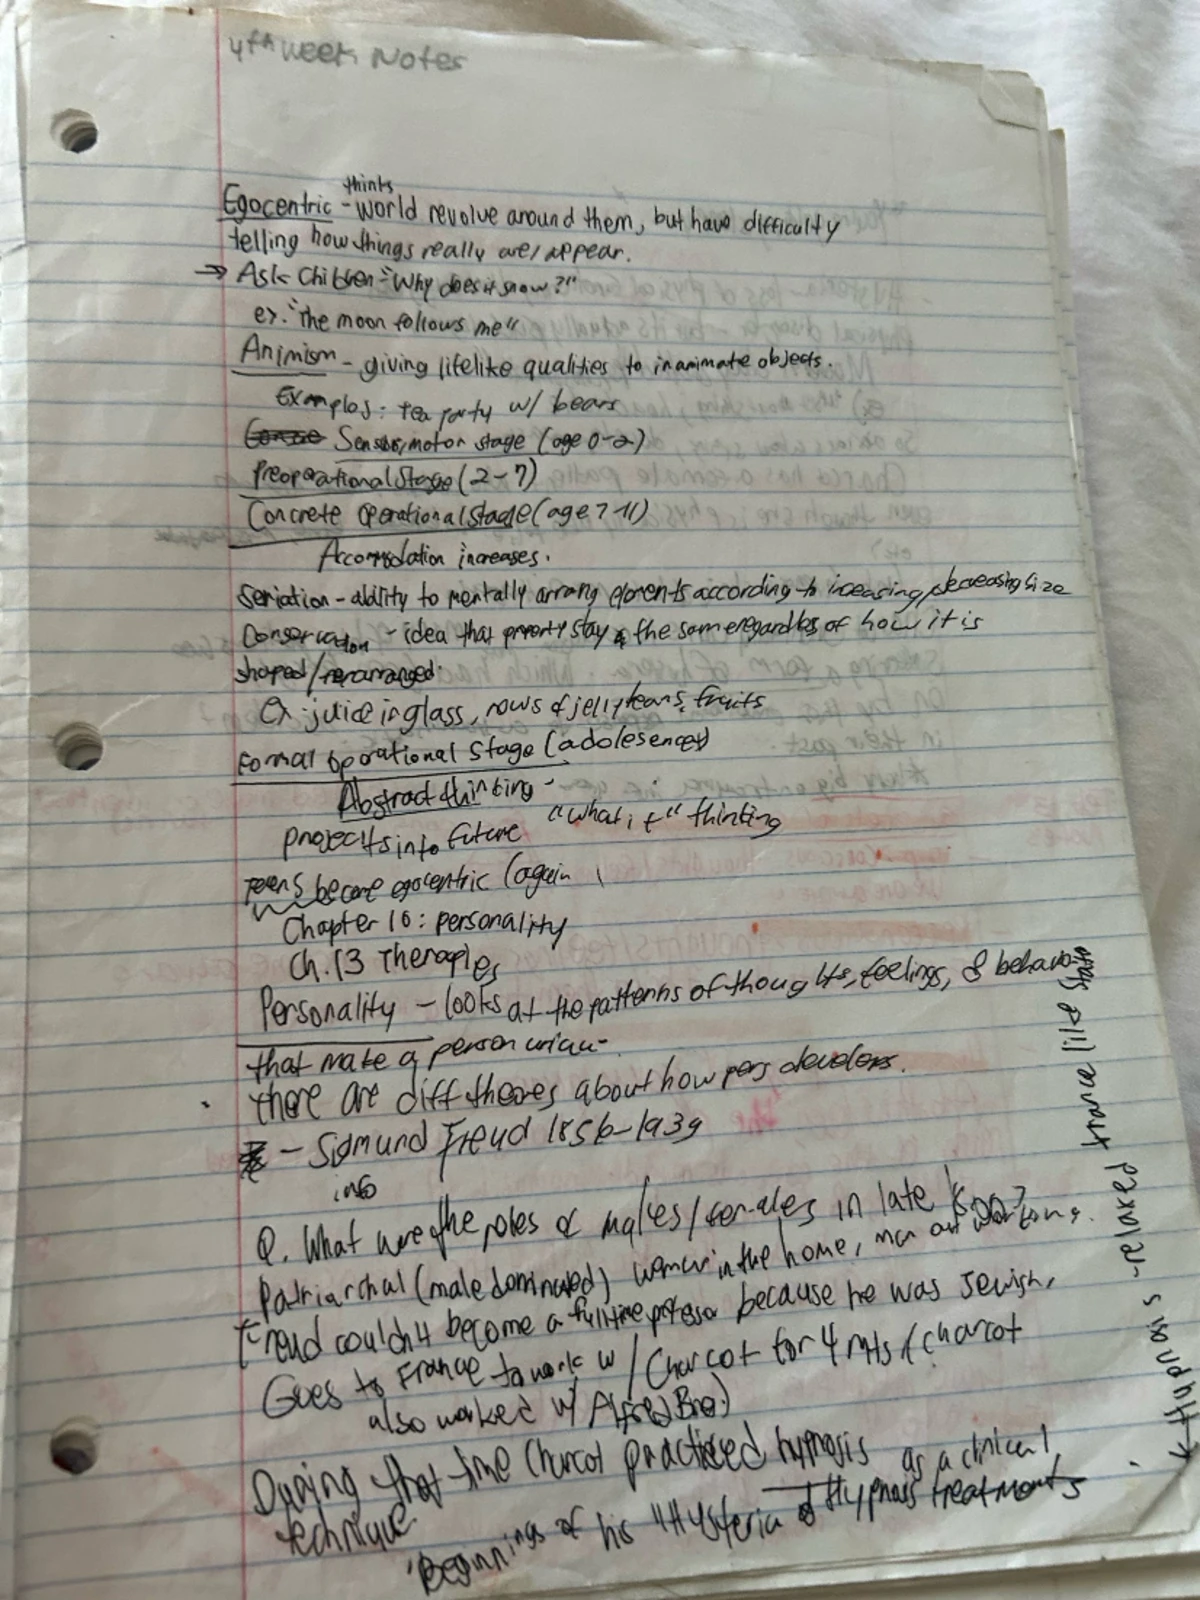 4th week Notes
thinks
Egocentric - world revolve around them, but have difficulty
telling how things really are/appear.
→ Ask Children - "Why does it snow?"
ex. "the moon follows me"
Animism - giving lifelike qualities to inanimate objects.
Examples: tea party w/ bears
Sensorimotor stage (age 0-2)
Preoperational Stage (2-7)
Concrete Operational Stage (age 7-11)
Accomodation increases.
Seriation - ability to mentally arrang elements according to increasing/decreasing size
Conservation - idea that property stays the same regardles of how it is
shaped/rearranged.
Ex. juice in glass, rows of jellybeans, fruits
Formal Operational Stage (adolesence)
Abstract thinking -
projects into future "what if" thinking
teens become egocentric (again)
Chapter 10: personality
Ch. 13 Therapies
Personality - looks at the patterns of thoughts, feelings, & behavior
that make a person uniqu-
there are diff theores about how pers develops.
- Sigmund Freud 1856-1939
info
Q. What were the roles of males/females in late 1800?
Patriarchal (male dominated) women in the home, men out working.
Freud couldn't become a fulltime professor because he was Jewish.
Goes to France to work w/ Charcot for 4 mts (Charcot
also worked w/ Alfred Bine.)
During that time Charcot practiced hypnosis as a clinical
technique
Beginnings of his "Hysteria & Hypnosis treatments
* Hypnosis - relaxed trance like state